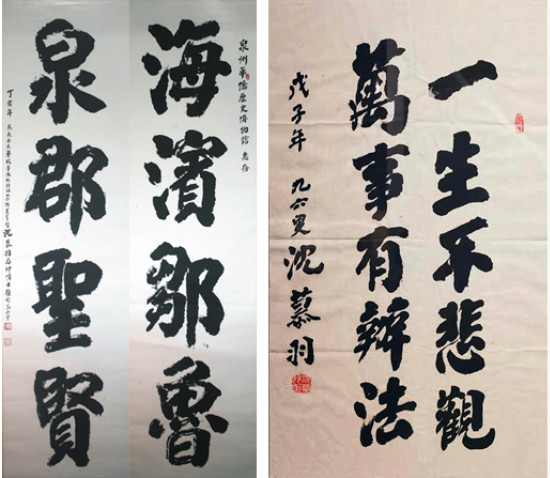 泉州華僑歷史博物館 惠存
海濱鄒魯
泉郡聖賢
丁亥年
一生不悲觀
萬事有辦法
戊子年 九六叟 沈慕羽